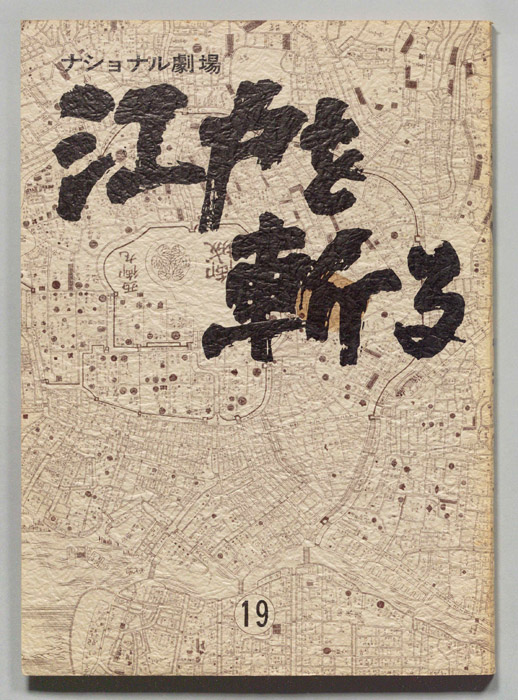 ナショナル劇場
江戸を
斬る
御城
西御丸
19